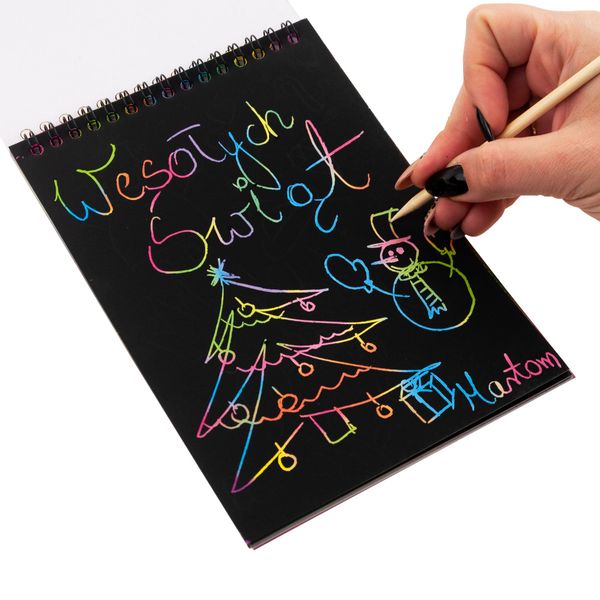 Wesołych
Świąt
Martom